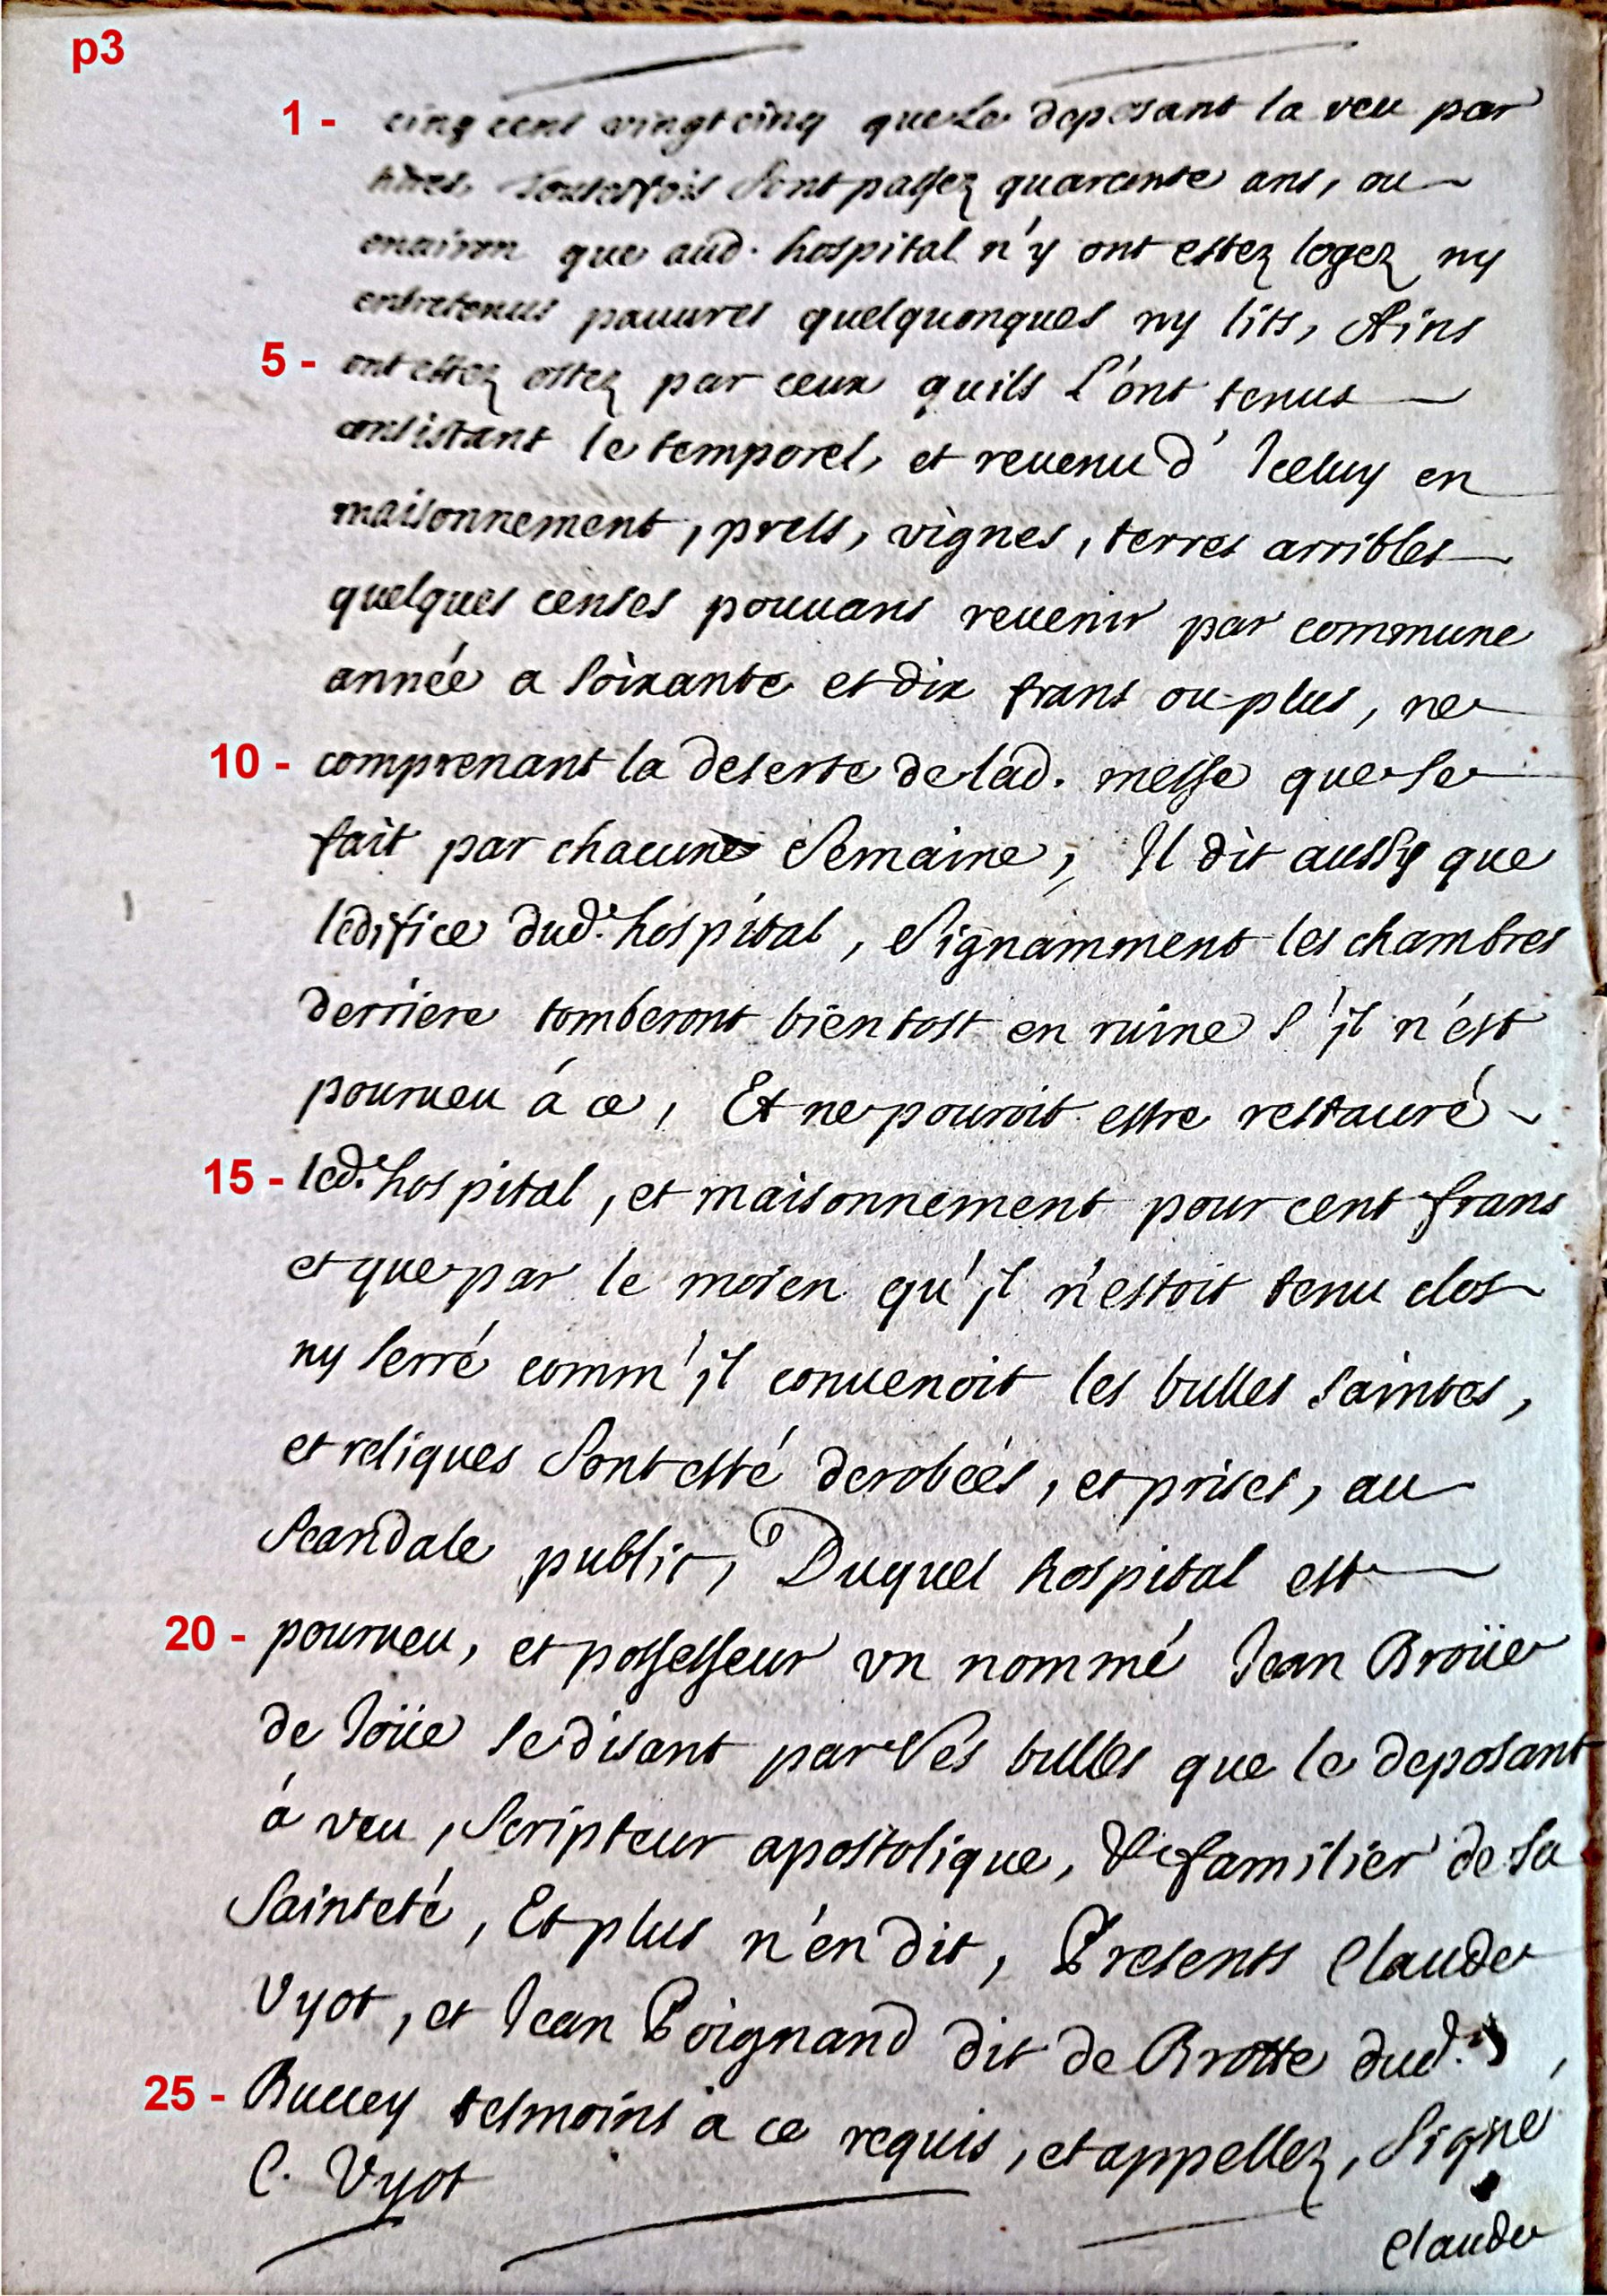 p3
1 - cinq cent vingt cinq que le deposant la veu par
tiltres, toutesfois sont passez quarente ans, ou
enuiron que aud. hospital n'y ont estez logez ny
entretenus pauures quelquonques ny lits, Ains
5 - ont estez ostez par ceux quils l'ont tenus
consistant le temporel, et reuenu d' Iceluy en
maisonnement, prels, vignes, terres arribles
quelques censes pouuans reuenir par commune
année a soixante et dix frans ou plus, ne
10 - comprenant la deserte de lad. messe que se
fait par chacune semaine, Il dit aussy que
ledifice dud. hospital, signamment les chambres
derriere tomberont bientost en ruine s'il n'est
pourueu à ce, Et ne pouroit estre restauré
15 - led. hospital, et maisonnement pour cent frans
et que par le moien qu'il n'estoit tenu clos
ny serré comm'il conuenoit les bulles saintes,
et reliques sont esté derobéés, et prises, au
scandale public, Duquel hospital est
20 - pourueu, et possesseur vn nommé Jean Broüe
de Joüe se disant par ses bulles que le deposant
à veu, scripteur apostolique, & familier de sa
sainteté, Et plus n'en dit, Presents Claude
Vyot, et Jean Poignand dit de Brotte dud.
25 - Buccey tesmoins a ce requis, et appellez, signé
C. Vyot
Claude